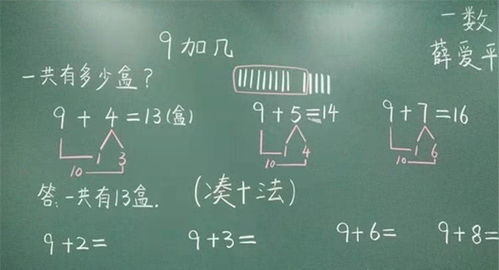 9加几
一数
薛爱平
一共有多少盒？
9+4=13(盒)
1 3
10
9+5=14
1 4
10
9+7=16
1 6
10
答：一共有13盒.
(凑十法)
9+2=
9+3=
9+6=
9+8=